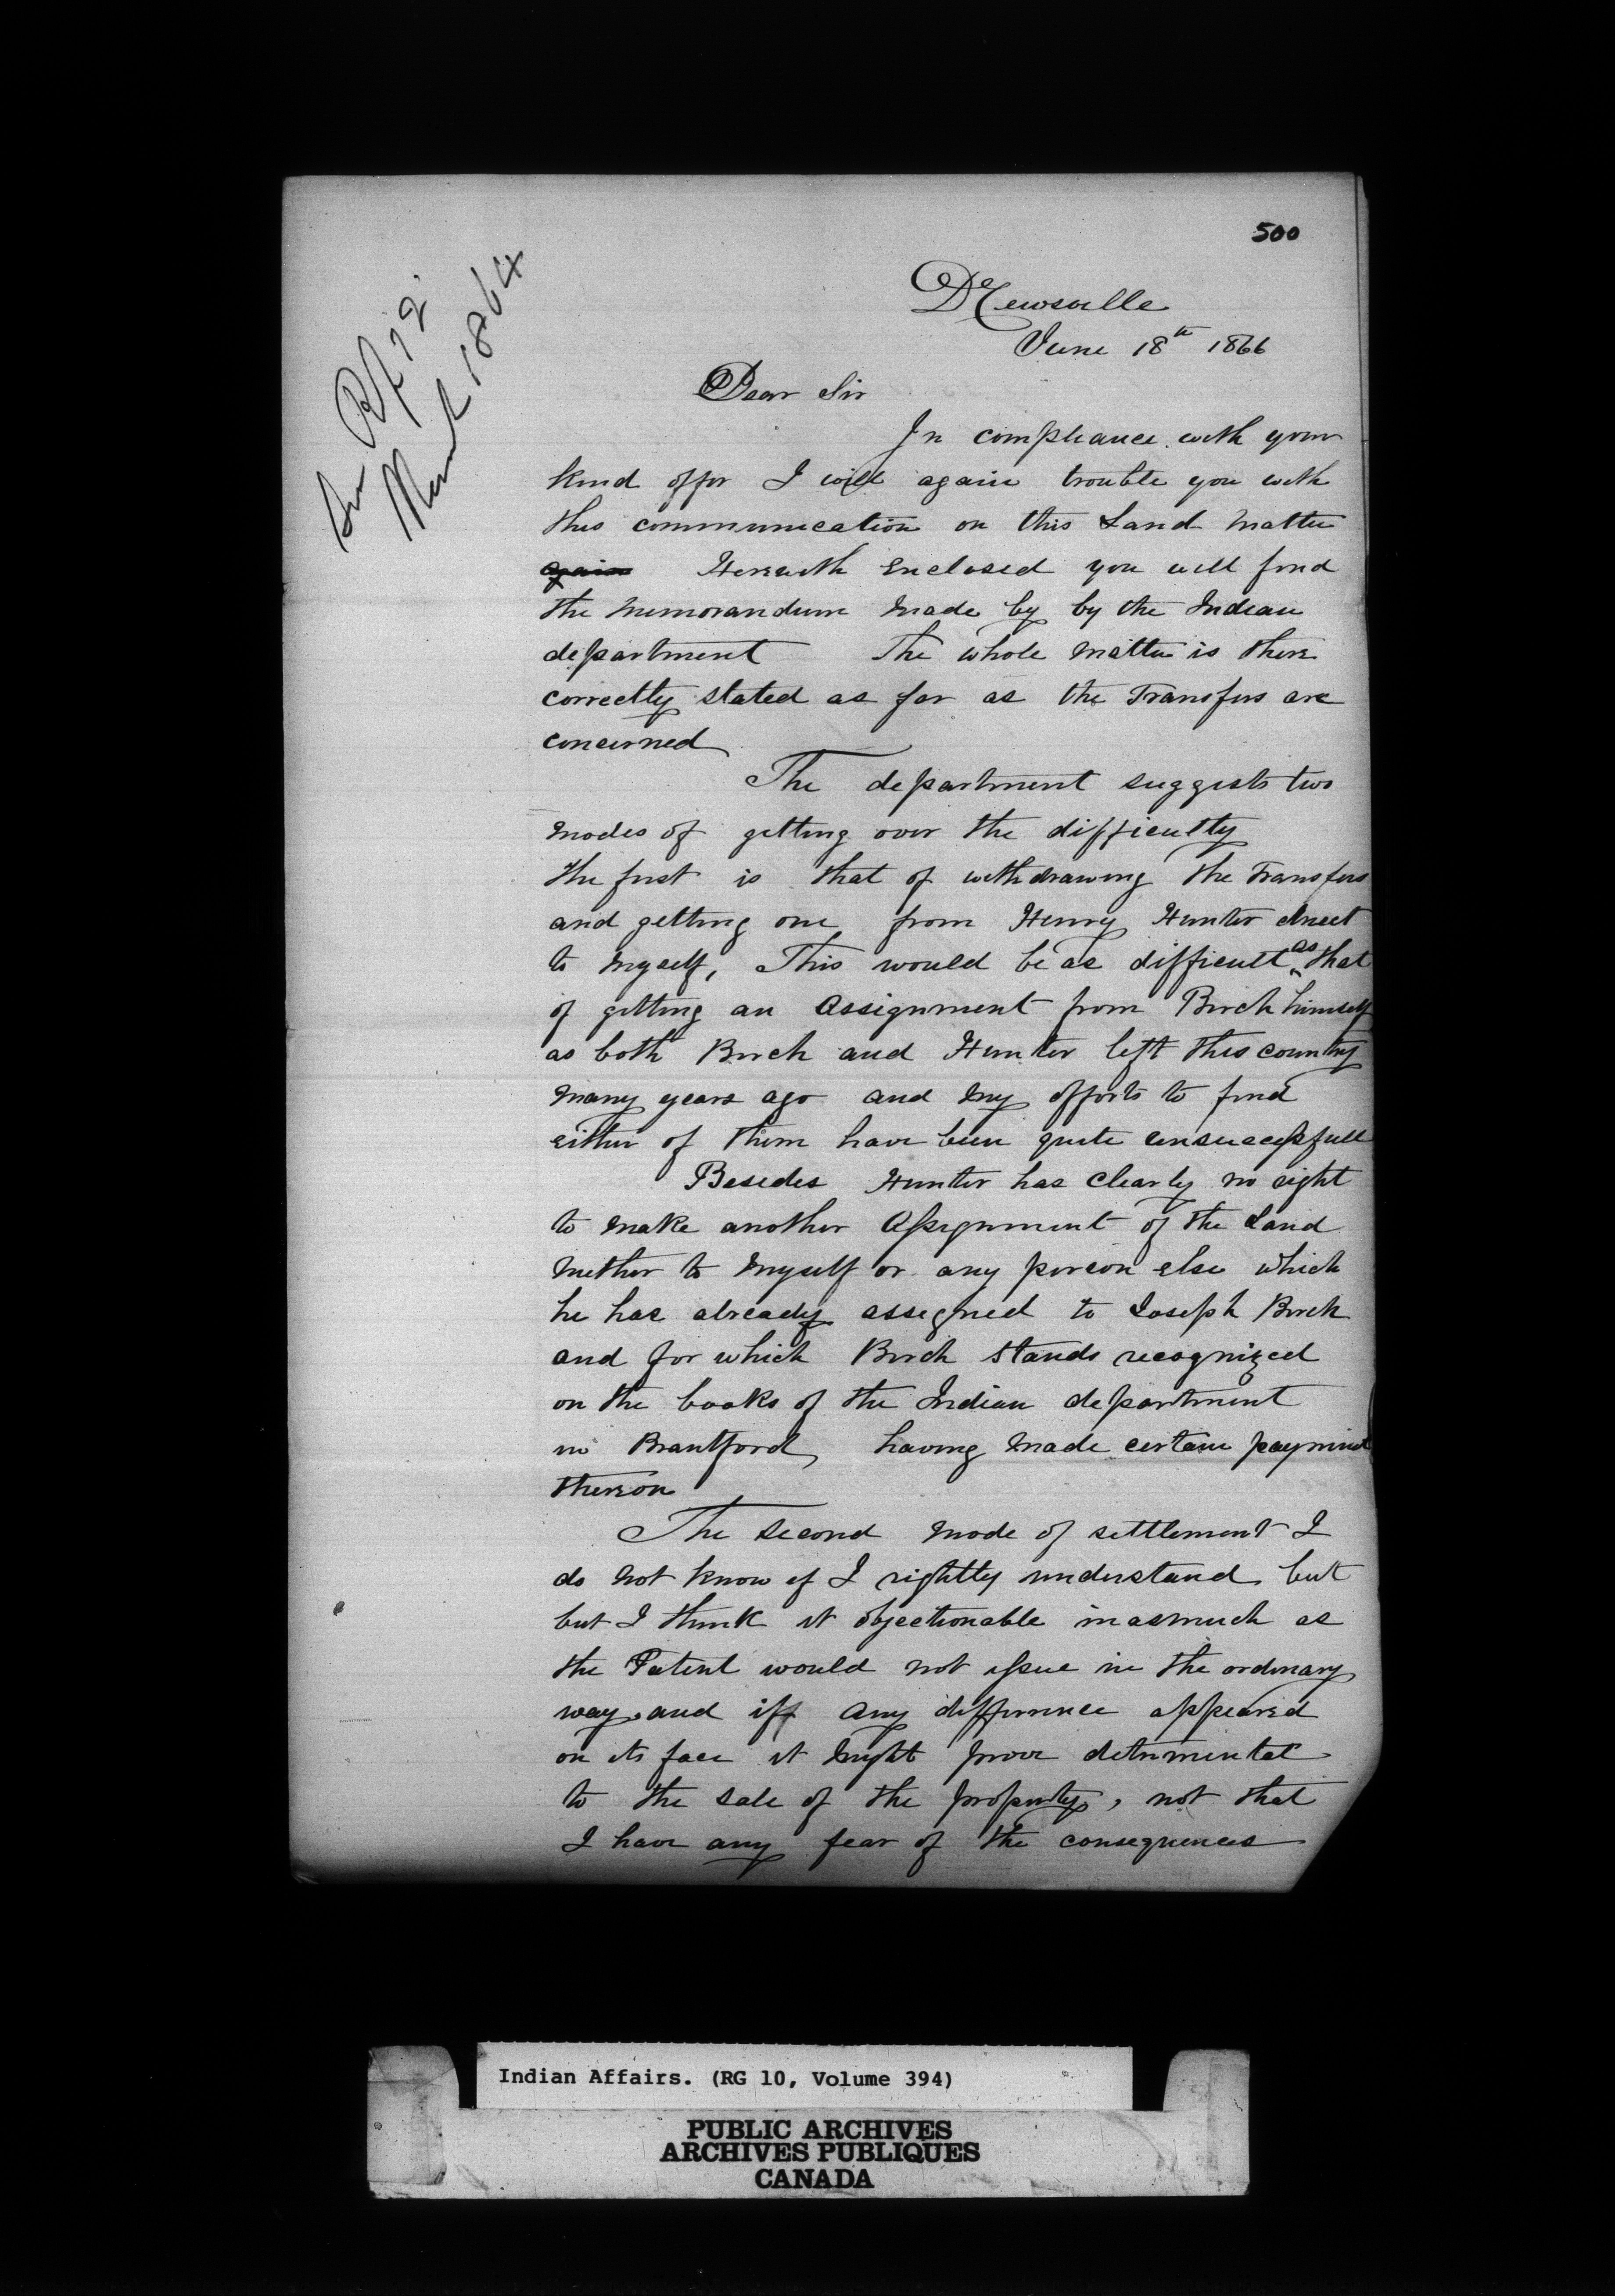 500
Drewsville
June 18th 1866
March 1864
Dear Sir
In compliance with your
kind offer I will again trouble you with
this communication on this Land Matter
again Herewith Enclosed you will find
the Memorandum Made by by the Indian
department The whole Matter is there
correctly stated as far as the Transfers are
concerned
The department suggests two
Modes of getting over the difficulty
The first is that of withdrawing the Transfers
and getting one from Henry Hunter direct
to Myself, This would be as difficult as that
of getting an Assignment from Birch himself
as both Birch and Hunter left this country
Many years ago and My efforts to find
either of them have been quite unsuccessfull
Besides Hunter has clearly no right
to Make another Assignment of the Land
neither to Myself or any person else which
he has already assigned to Joseph Birch
and for which Birch stands recognized
on the books of the Indian department
in Brantford, having Made certain payment
thereon
The Second Mode of settlement I
do Not know if I rightly understand but
but I think it objectionable inasmuch as
the Patent would not issue in the ordinary
way and iff any difference appeared
on its face it Might prove detrimental
to the sale of the property, not that
I have any fear of the consequences
Indian Affairs. (RG 10, Volume 394)
PUBLIC ARCHIVES
ARCHIVES PUBLIQUES
CANADA